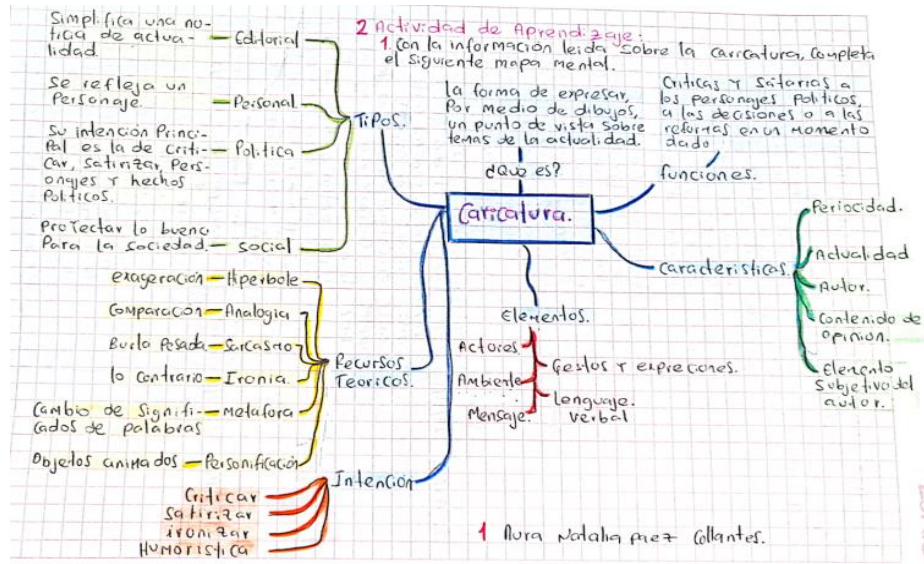 2 Actividad de Aprendizaje:
1. Con la información leida sobre la caricatura, Completa
el siguiente mapa mental.
Caricatura.
¿Que es?
la forma de expresar,
Por medio de dibujos,
un punto de vista sobre
temas de la actualidad.
funciones.
Criticas Y Satarias a
los personajes Politicos,
a las decisiones o a las
reformas en un momento
dado
Caracteristicas.
Periocidad.
Actualidad
Autor.
Contenido de
opinion.
Elemento
Subjetivo del
autor.
Elementos.
Actores.
Ambiente
Mensaje.
Gestos Y expreciones.
Lenguaje.
verbal
TiPos.
Editorial
Simplifica una no-
ticia de actua-
lidad.
Personal
Se refleja un
Personaje.
Politica
Su intención Princi-
Pal es la de criti-
Car, Satirizar, Pers-
onajes Y hechos
Politicos.
Social
Proyectar lo bueno
Para la Sociedad.
Recursos
Teoricos.
exageración - Hiperbole
Comparacón - Analogia
Burla Pesada - Sarcasmo
lo Contrario - Ironia.
Cambio de Signifi- - metafora
cados de palabras
Objetos animados - Personificación
Intención
Criticar
Satirizar
ironizar
HUMORistica
1 Aura Natalia Paez Collantes.